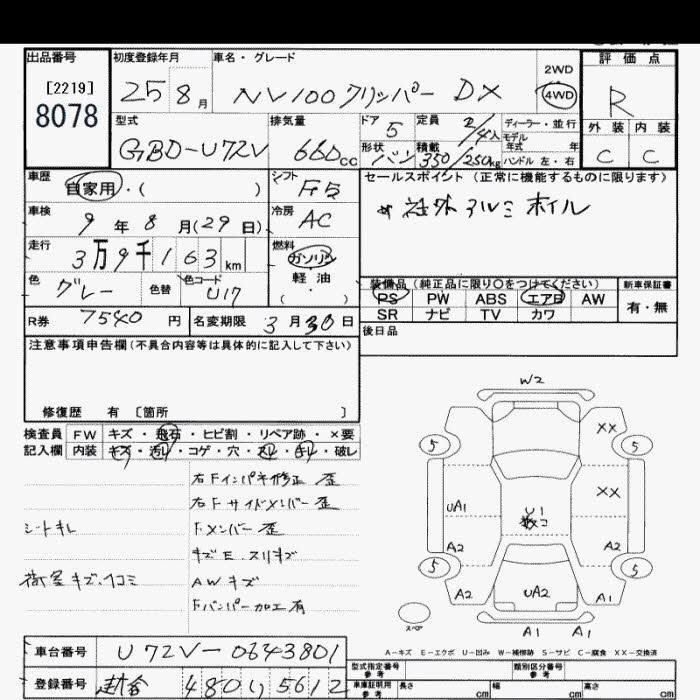 出品番号 初度登録年月 車名・グレード 2WD 評価点
[2219] 25 8月 NV100クリッパー DX 4WD R
8078
型式 排気量 ドア 定員 ディーラー・並行 外装 内装
GBD-U72V 660cc 5 2/4人 モデル年式 年 C C
形状 積載 ハンドル 左・右
バン 350/250kg
車歴 シフト セールスポイント (正常に機能するものに限ります)
自家用・( ) F5 社外アルミホイル
車検 冷房
9年8月(29日) AC
走行 燃料
3万9千163km ガソリン
軽油
( )
色 色替 色コード 装備品 (純正品に限り〇をつけてください) 新車保証書
グレー U17 PS PW ABS エアB AW 有・無
R券 7540円 名変期限 3月30日 SR ナビ TV カワ
注意事項申告欄(不具合内容等は具体的に記入して下さい) 後日品
修復歴 有 [箇所 ]
検査員 FW キズ・飛石・ヒビ割・リペア跡・×要
記入欄 内装 キズ・汚レ・コゲ・穴・スレ・キレ・破レ
右Fインパネ修正 歪
右Fサイドメンバー 歪
シートキレ Fメンバー 歪
キズE スリキズ
荷室キズ、凹コミ AWキズ
Fバンパー加工有
W2
XX
5 5
XX
UA1 U1
数コ
A2 A2
5 5
A2 UA2 A1
スペア
A1 A1
A-キズ E-エクボ U-凹み W-補修跡 S-サビ C-腐食 XX-交換済
車台番号 U72V-0643801
型式指定番号 参考 類別区分番号 参考
登録番号 480 り 5612
車庫証明用 参考 長さ cm 幅 cm 高さ cm